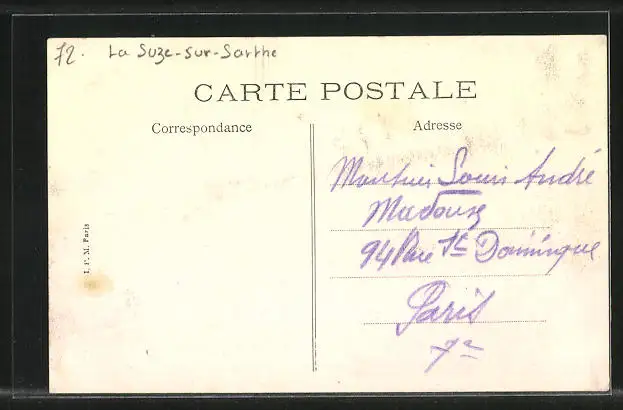 72. La Suze-sur-Sarthe
CARTE POSTALE
Correspondance
Adresse
Louis André
94 Rue St Dominique
Paris
7e
I. P. M. Paris